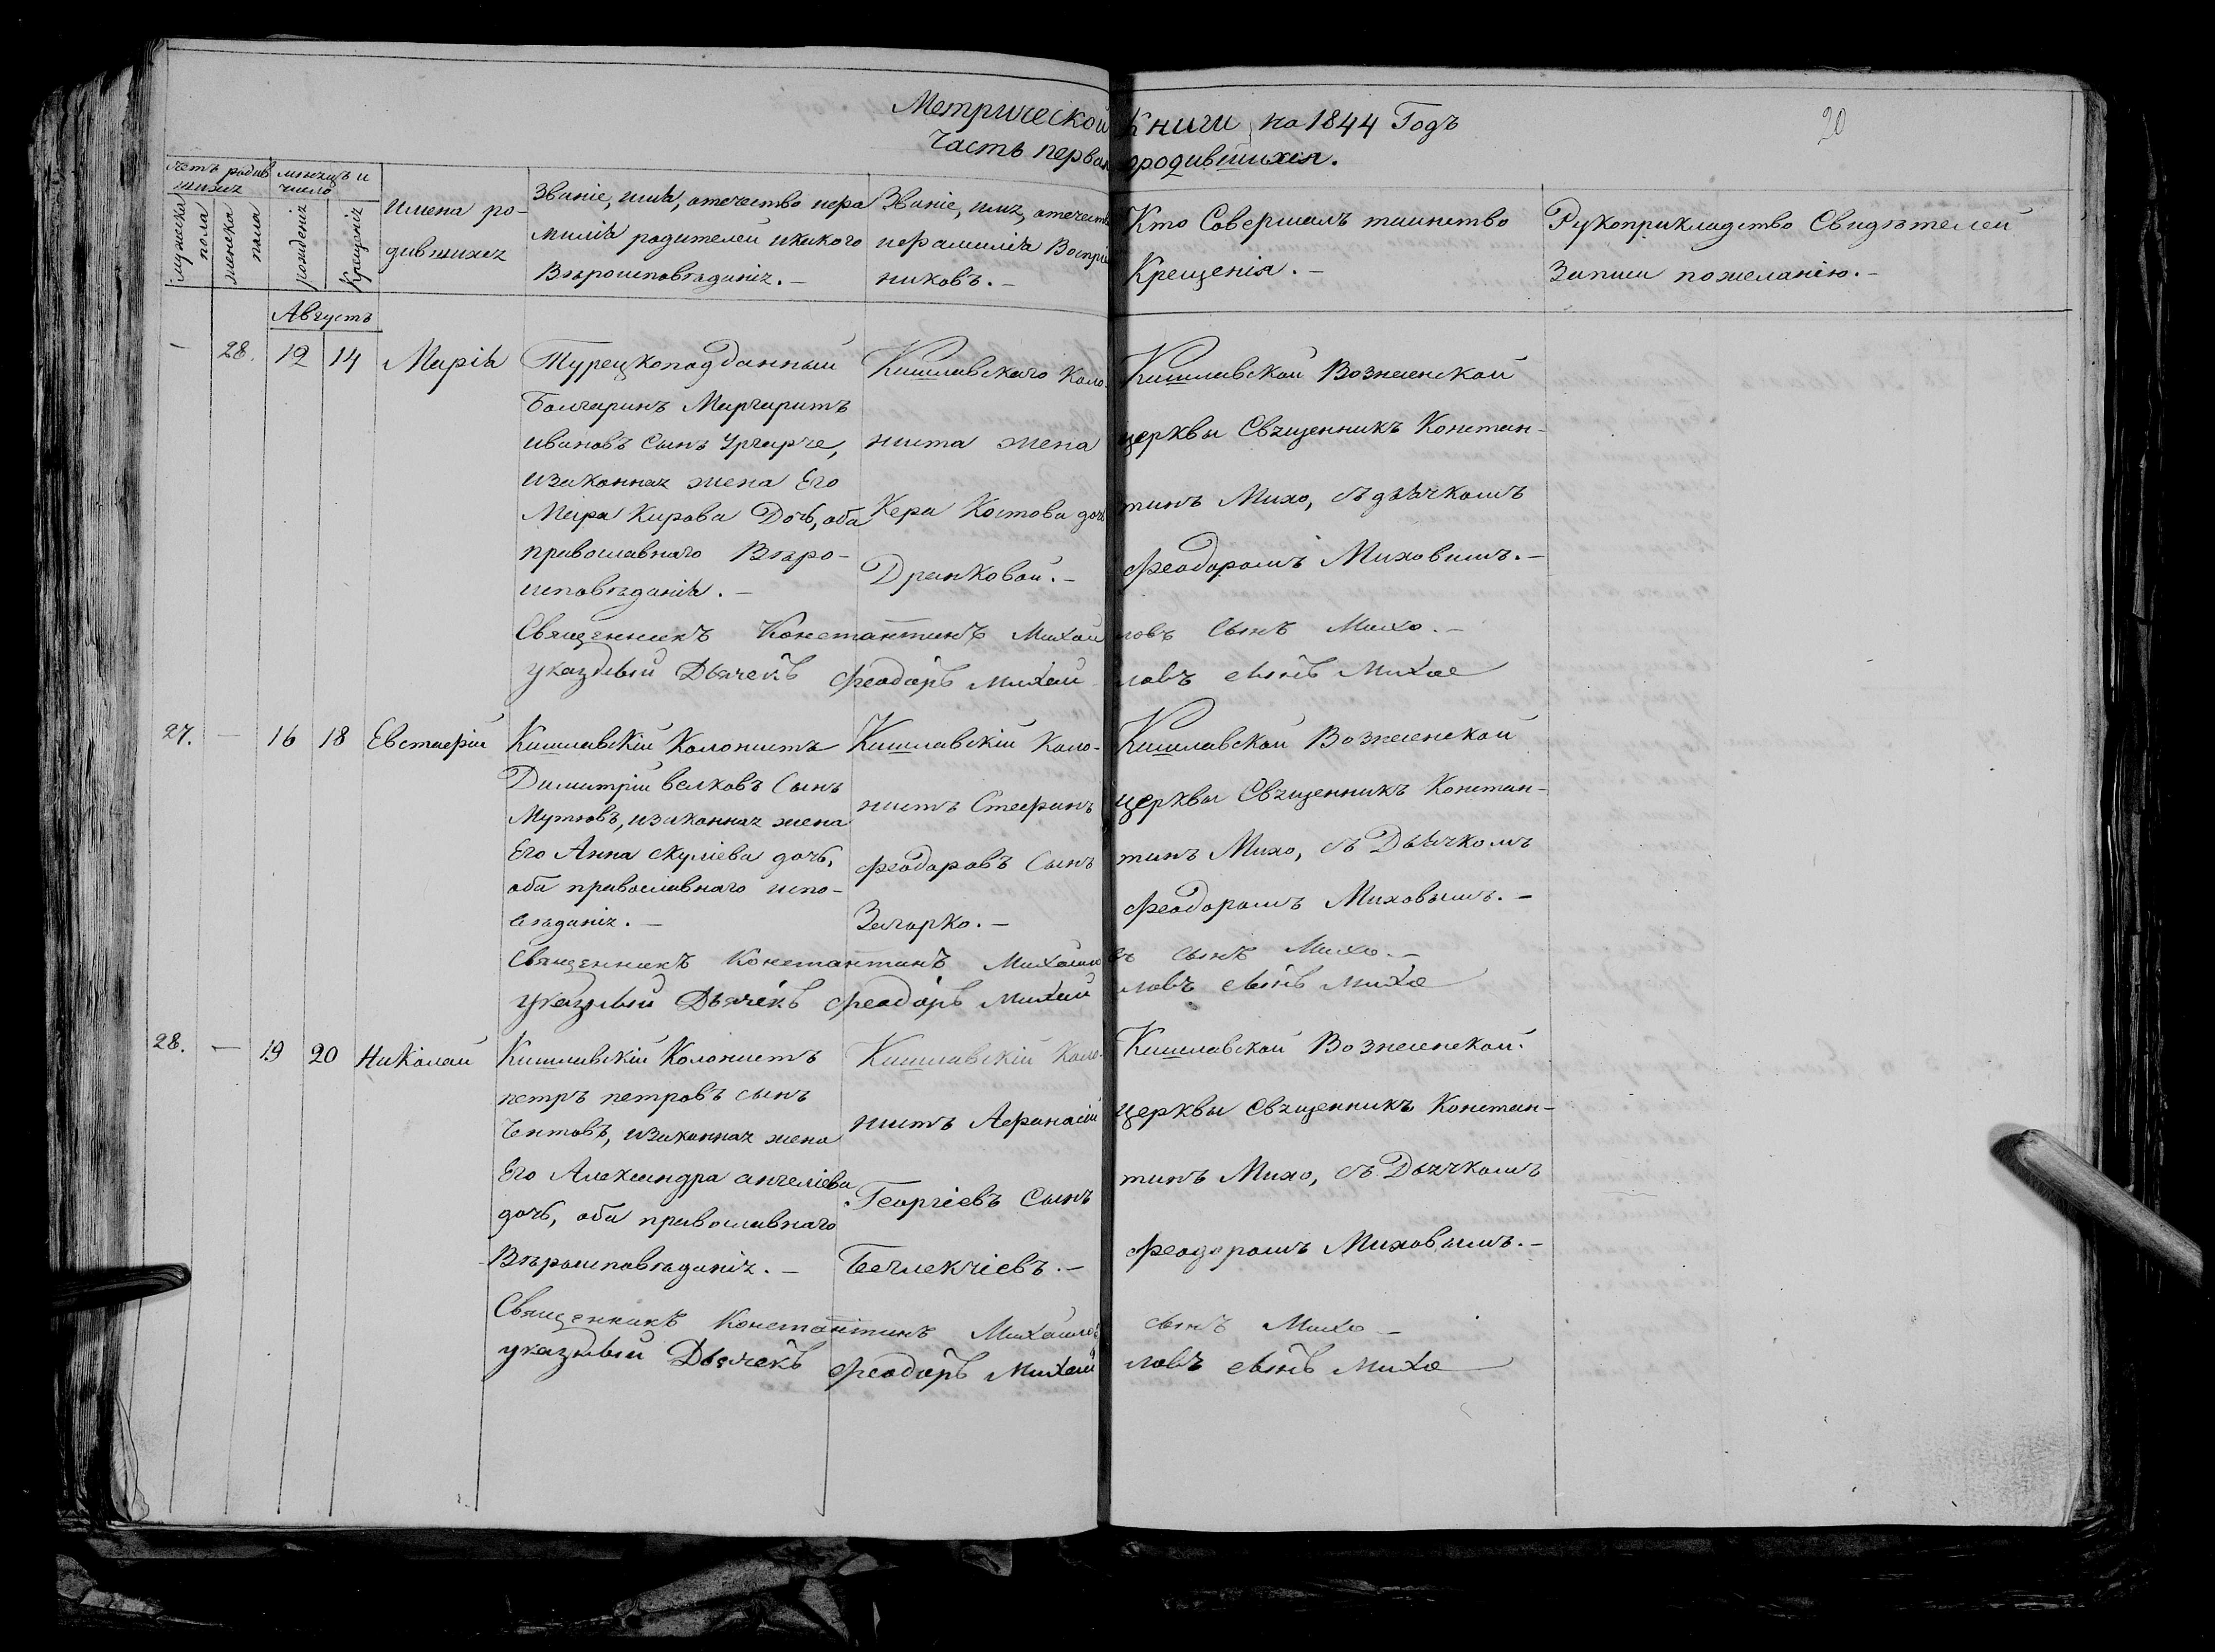 Метрической Книги на 1844 Годъ
20
Часть первая о родившихся.
счетъ родив мѣсяцъ и
шихся число
мужеска пола
женска пола
рожденія
Крещенія
Имена ро-
дившихся
Званіе, имя, отечество и фа
милія родителей и какого
Вѣроисповѣданія. –
Званіе, имя, отечеств
и фамилія Воспріе
никовъ. –
Кто Совершалъ таинство
Крещенія. –
Рукоприкладство Свидѣтелей
Записи по желанію. –
Августъ
– 28. 12 14 Марія
Турецкоподданный
Болгаринъ Маргаритъ
Ивановъ Сынъ Ургарче,
и законная жена Его
Мара Кирова Дочь, оба
православнаго Вѣро-
исповѣданія. –
Кишлавскаго Коло-
ниста жена
Кера Костова дочь
Дранковой. –
Кишлавской Вознесенской
церквы Священникъ Констан-
тинъ Михо, съ дьячкомъ
Феодоромъ Миховымъ. –
Священникъ Константинъ Михаиловъ Сынъ Михо. –
указный Дьячекъ Феодоръ Михаиловъ сынъ Михо
27. – 16 18 Евстафій
Кишлавскій Колонистъ
Димитрій Велковъ Сынъ
Мутювъ, и законная жена
Его Анна Скуліева дочь,
оба православнаго испо-
вѣданія. –
Кишлавскій Коло-
нистъ Стефанъ
Феодоровъ Сынъ
Загорко. –
Кишлавской Вознесенской
церквы Священникъ Констан-
тинъ Михо, съ Дьячкомъ
Феодоромъ Миховымъ. –
Священникъ Константинъ Михаиловъ сынъ Михо. –
указный Дьячекъ Феодоръ Михаиловъ сынъ Михо
28. – 19 20 Николай
Кишлавскій Колонистъ
петръ петровъ сынъ
Чентовъ, и законная жена
Его Александра ангеліева
дочь, оба православнаго
Вѣроисповѣданія. –
Кишлавскій Коло-
нистъ Афанасій
Георгіевъ Сынъ
Беглекчіевъ. –
Кишлавской Вознесенской
церквы Священникъ Констан-
тинъ Михо, съ Дьячкомъ
Феодоромъ Миховымъ. –
Священникъ Константинъ Михаиловъ сынъ Михо –
указный Дьячекъ Феодоръ Михаиловъ сынъ Михо